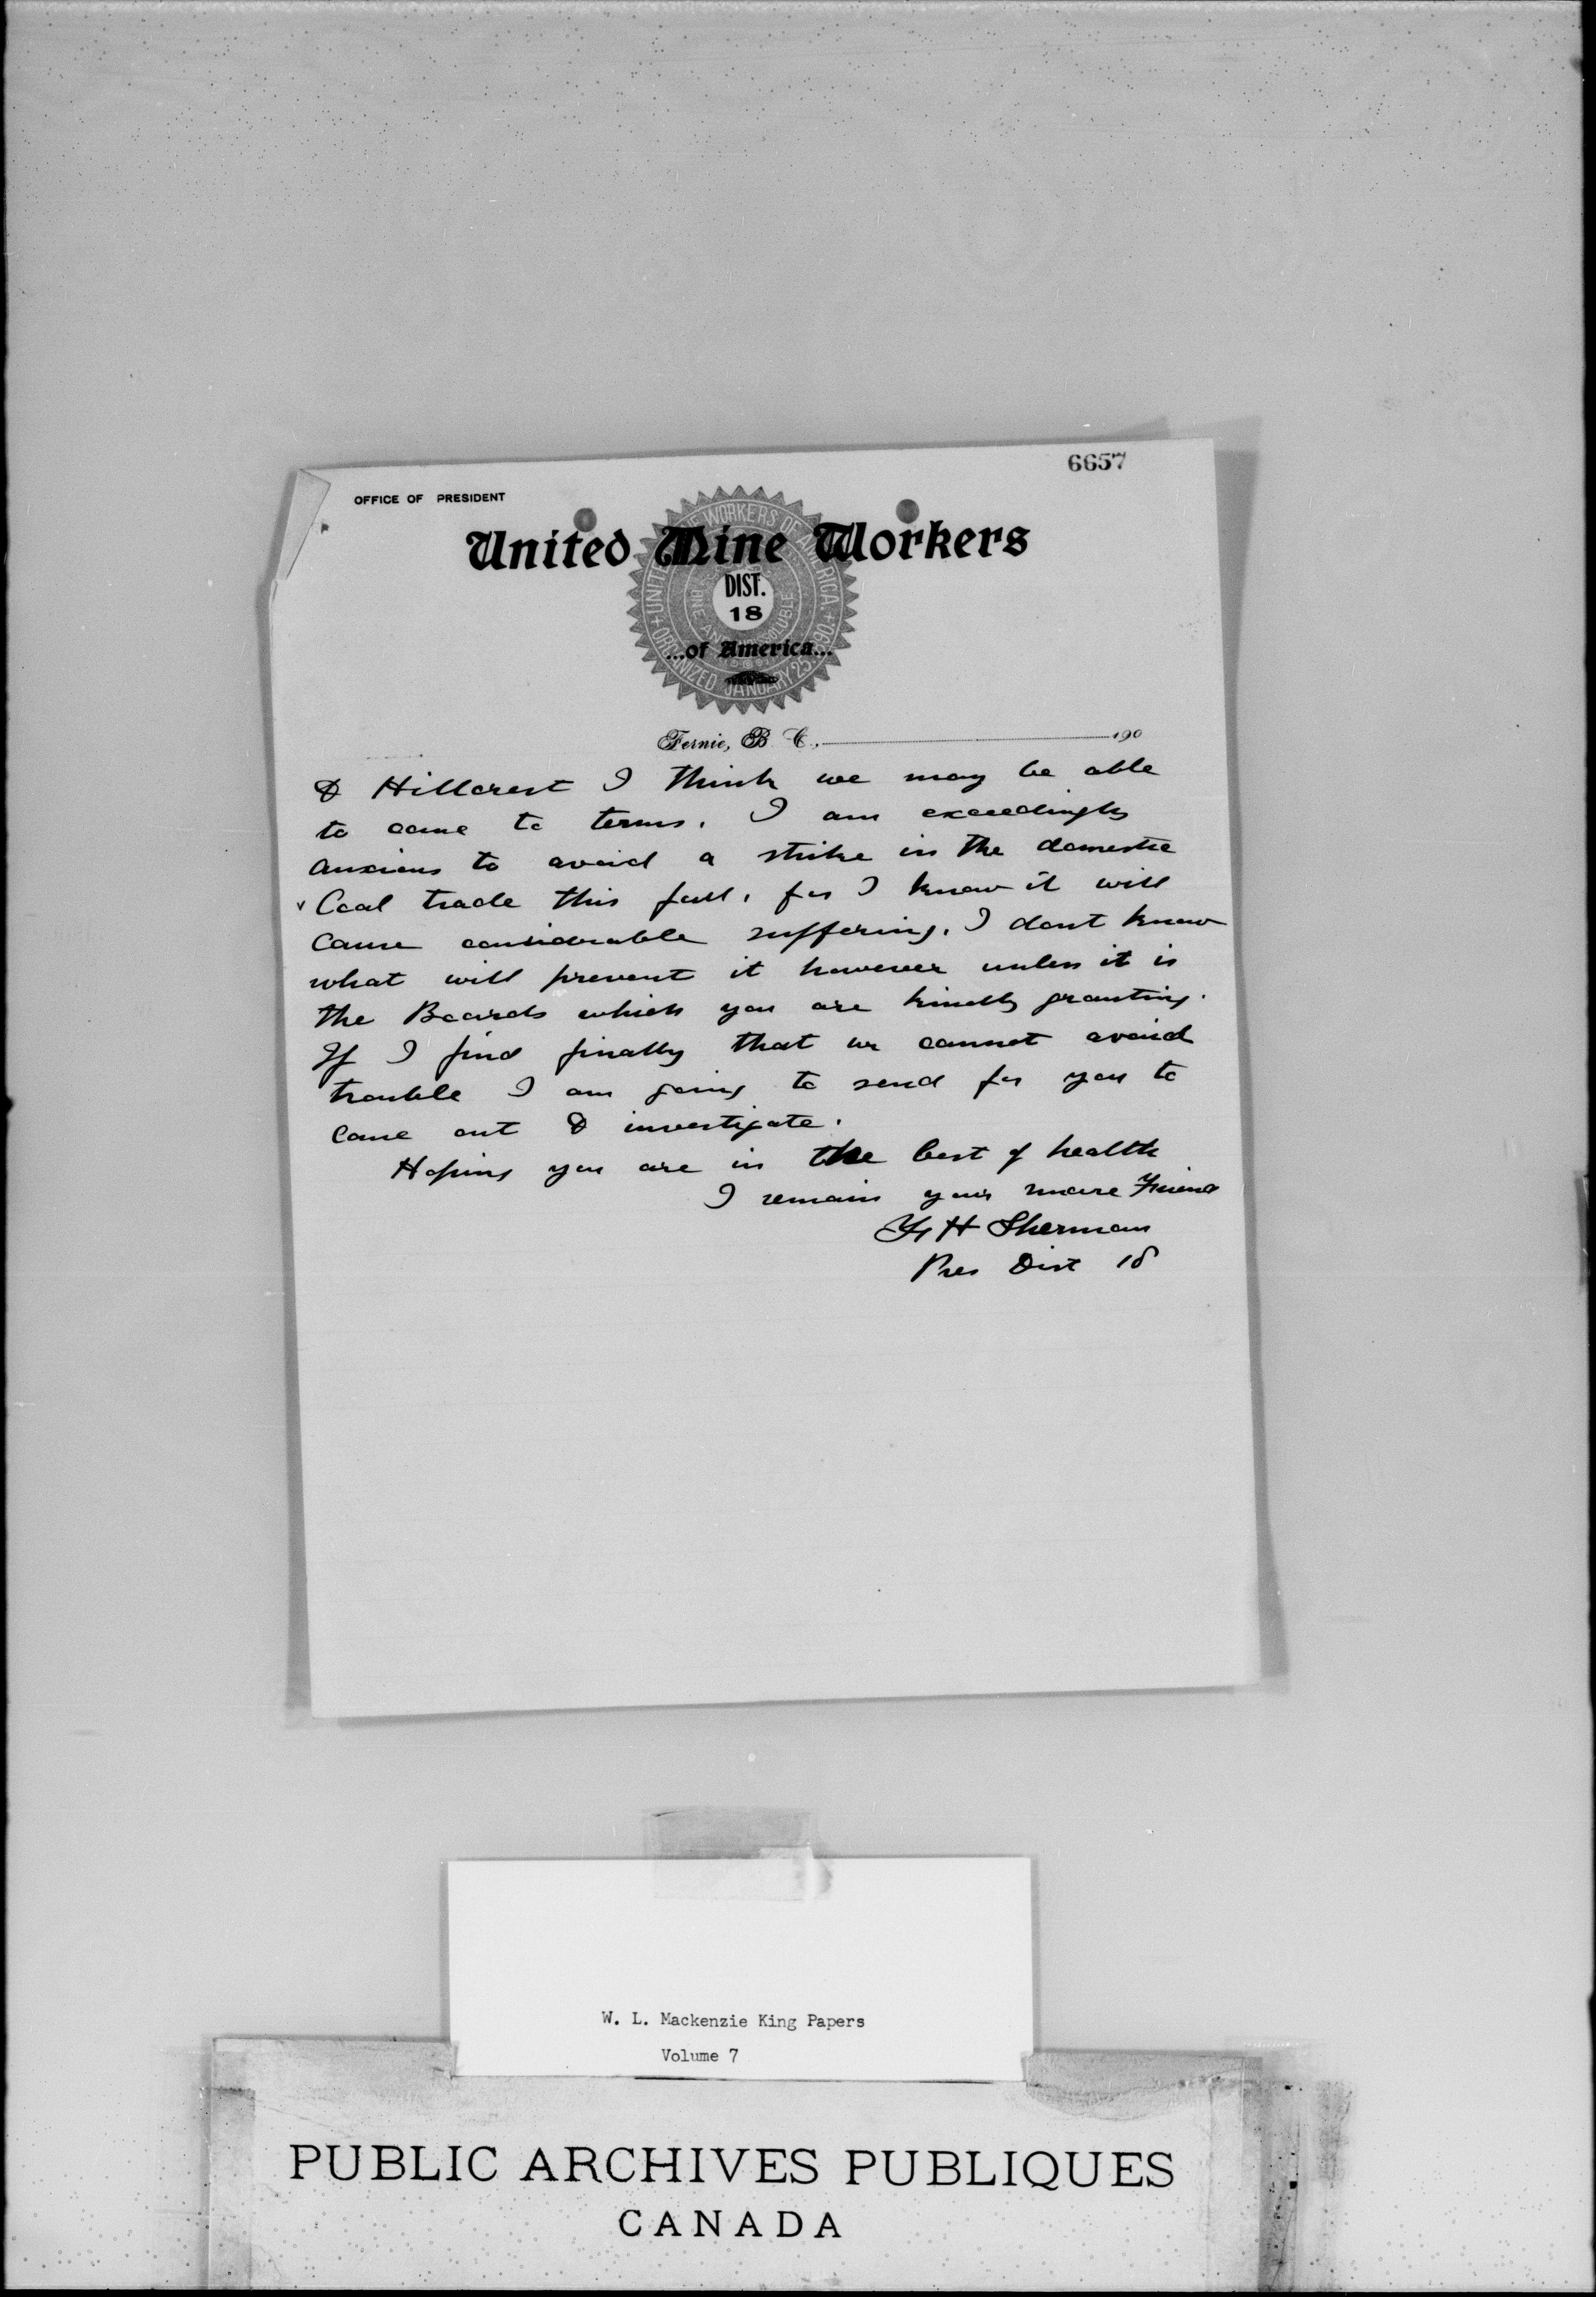 6657
OFFICE OF PRESIDENT
United Mine Workers
DIST.
18
...of America...
UNITED MINE WORKERS OF AMERICA. ORGANIZED JANUARY 25 1890
Fernie, B. C., 190
& Hillcrest I think we may be able
to come to terms. I am exceedingly
anxious to avoid a strike in the domestic
Coal trade this fall, for I know it will
cause considerable suffering. I dont know
what will prevent it however unless it is
the Boards which you are kindly granting.
If I find finally that we cannot avoid
trouble I am going to send for you to
come out & investigate.
Hoping you are in the best of health
I remain your Friend
F H Sherman
Pres Dist 18
W. L. Mackenzie King Papers
Volume 7
PUBLIC ARCHIVES PUBLIQUES
CANADA